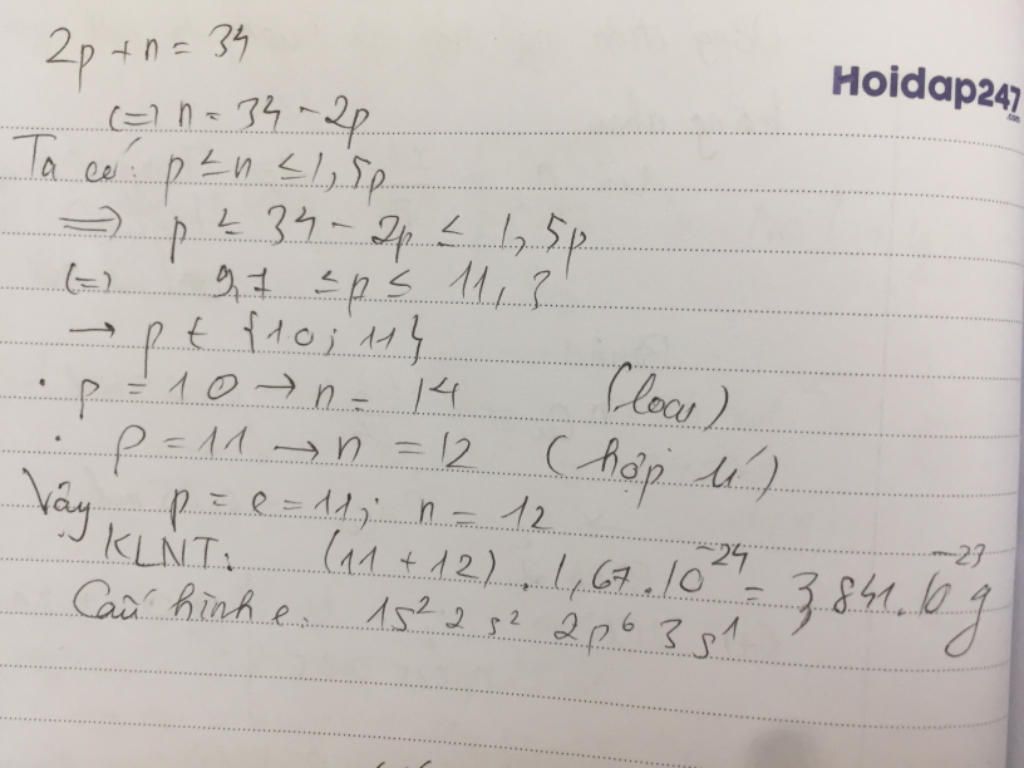 2p + n = 34
Hoidap247
.com
(=) n = 34 - 2p
Ta có: p ≤ n ≤ 1,5p
=> p ≤ 34 - 2p ≤ 1,5p
(=) 9,7 ≤ p ≤ 11,3
→ p ∈ {10; 11}
. p = 10 → n = 14 (loại)
. p = 11 → n = 12 (hợp lí)
Vậy p = e = 11; n = 12
KLNT: (11 + 12) . 1,67 . 10⁻²⁴ = 3,841 . 10⁻²³ g
Cấu hình e: 1s² 2s² 2p⁶ 3s¹